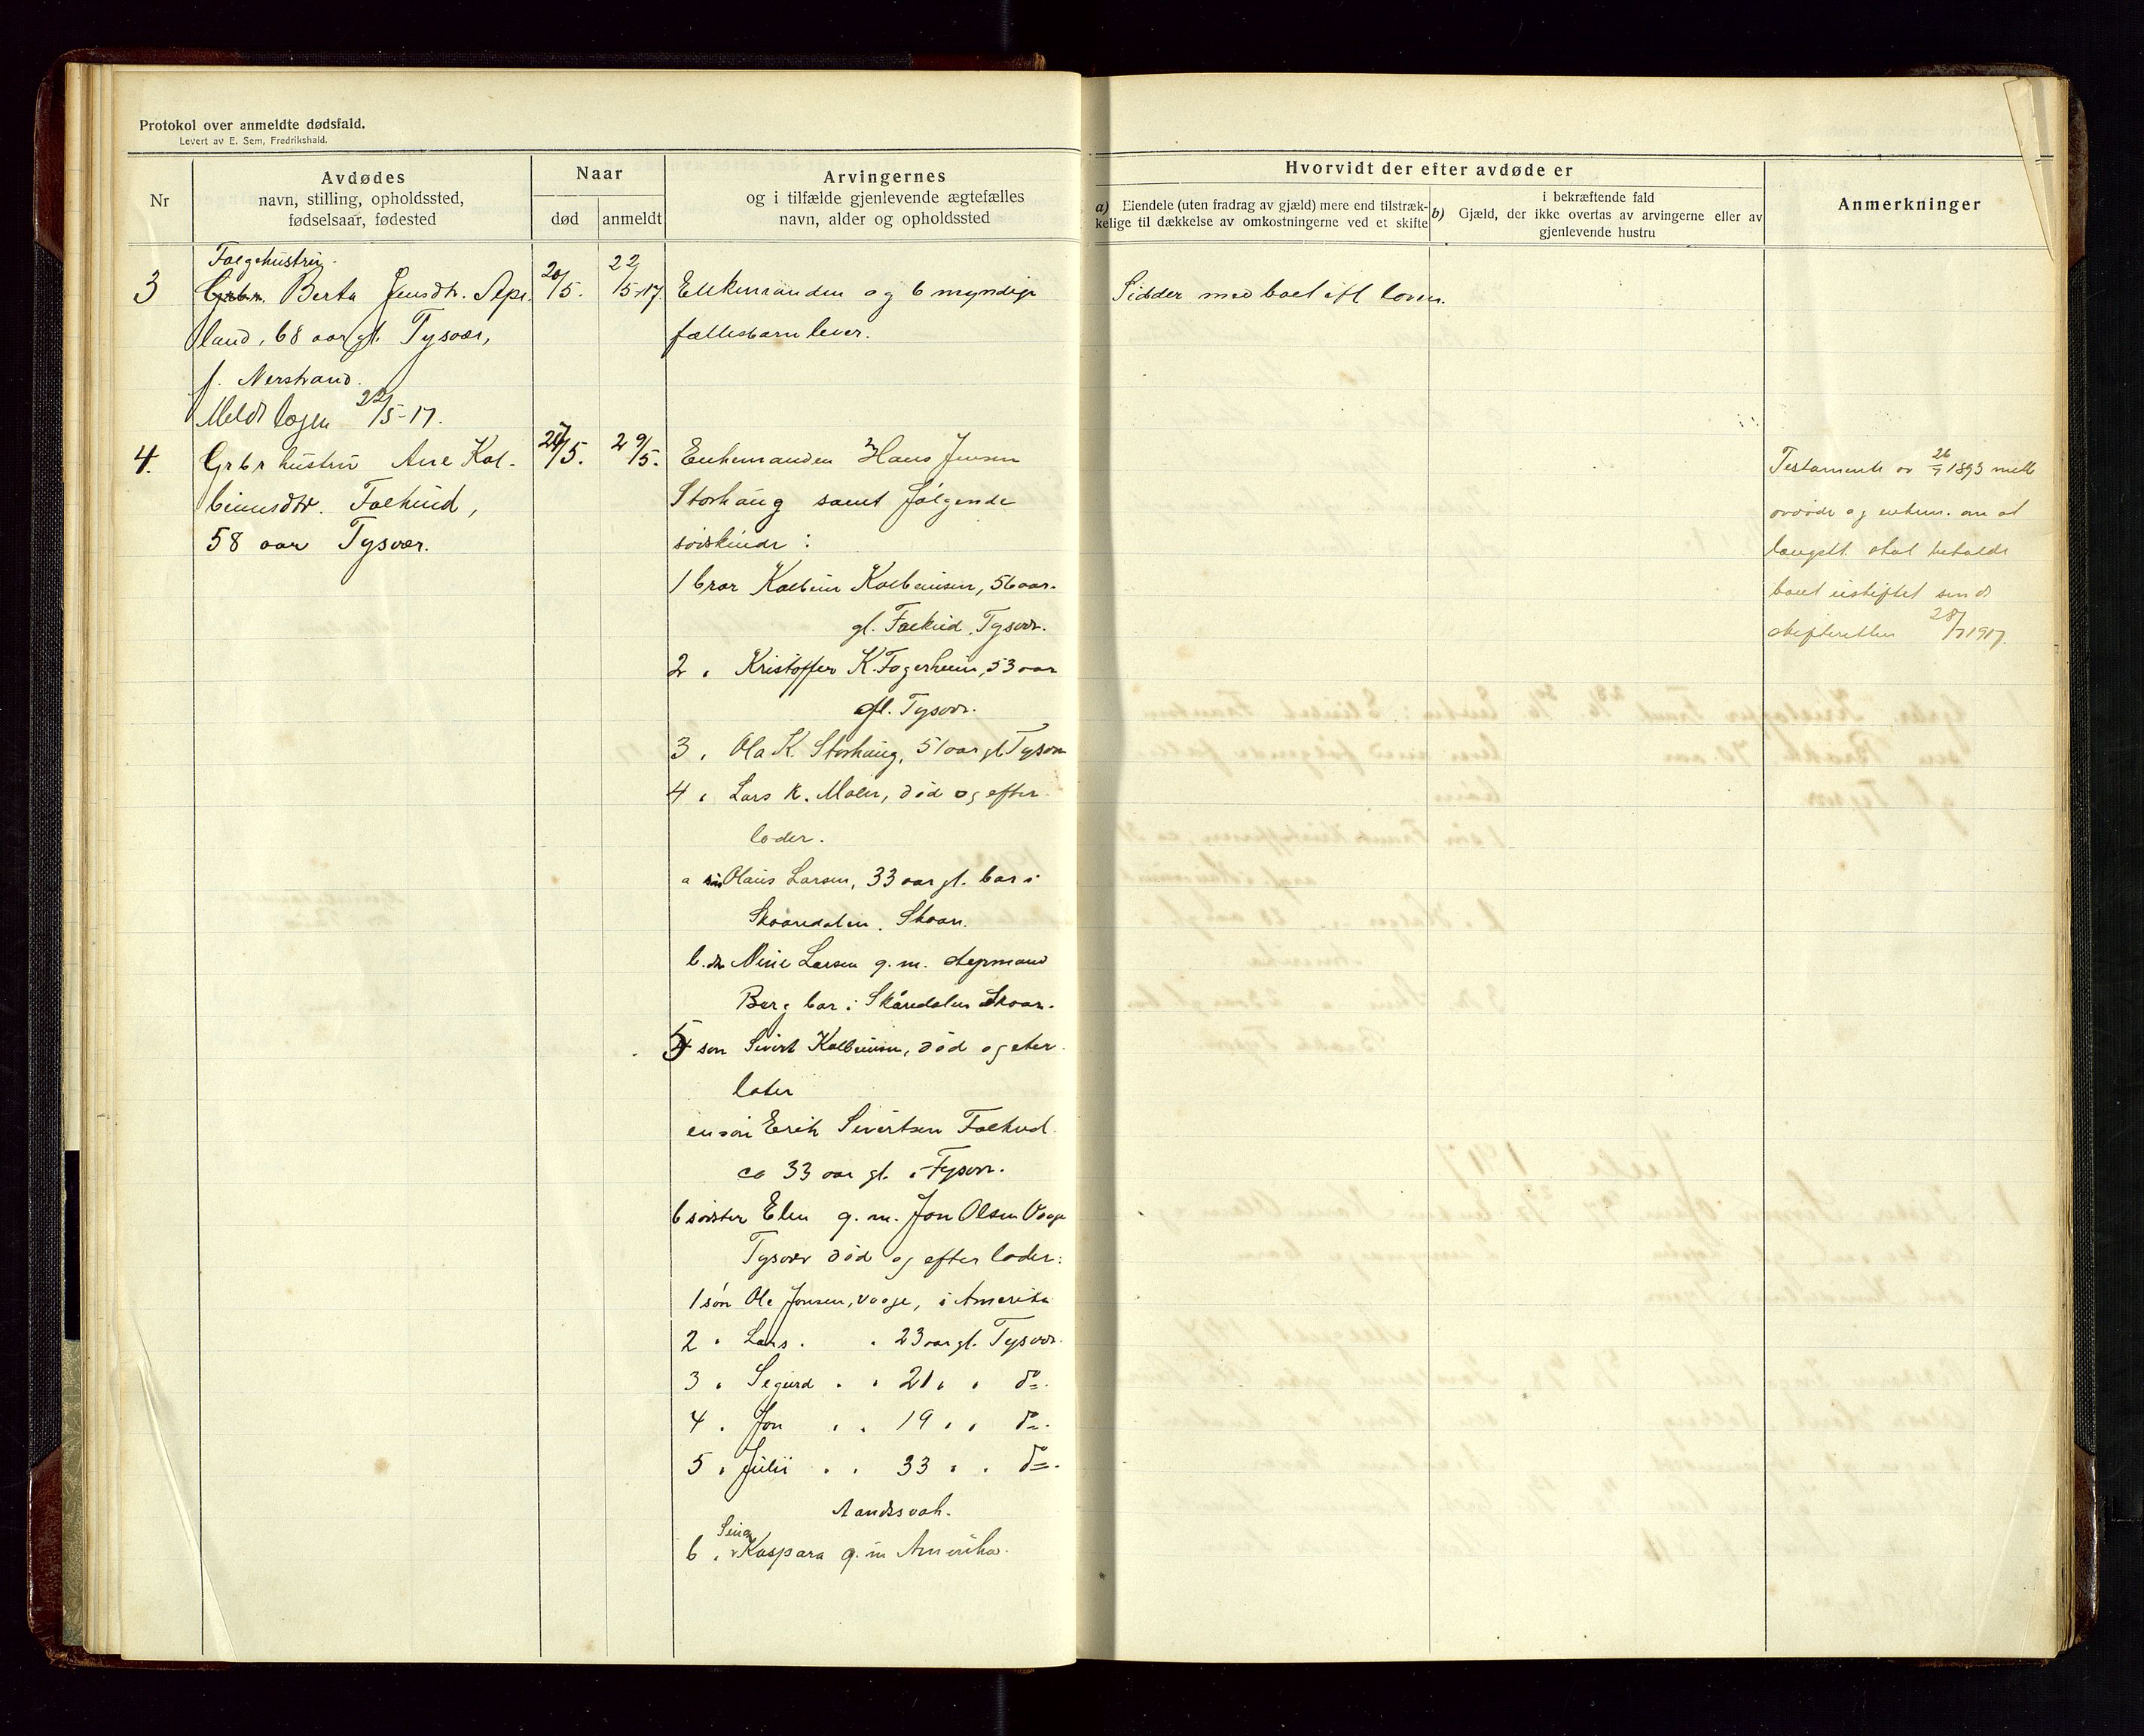 Protokol over anmeldte dødsfald.
Levert av E. Sem, Fredrikshald.
Nr
Avdødes
navn, stilling, opholdssted,
fødselsaar, fødested
Naar
død
anmeldt
Arvingernes
og i tilfælde gjenlevende ægtefælles
navn, alder og opholdssted
Hvorvidt der efter avdøde er
a) Eiendele (uten fradrag av gjæld) mere end tilstræk-
kelige til dækkelse av omkostningerne ved et skifte
i bekræftende fald
b) Gjæld, der ikke overtas av arvingerne eller av
gjenlevende hustru
Anmerkninger
3
Folgehustru
Grbr. Berta Jensdtr. Ape-
land, 68 aar gl. Tysvær,
f. Nerstrand.
Meldt 22/5-17.
20/5.
22/5-17
Enkemanden og 6 myndige
fællesbarn lever.
Sidder med boet eft loven.
4.
Grbr hustru Ane Kol-
beinsdtr. Falkeid,
58 aar Tysvær.
27/5.
29/5.
Enkemanden Hans Jensen
Storhaug samt følgende
søiskinde:
1 bror Kolbein Kolbeinsen, 56 aar.
gl. Falkeid, Tysvær.
2 " Kristoffer K. Fagerheim, 53 aar
gl. Tysvær.
3 " Ola K. Storhaug, 51 aar gl Tysvær
4 " Lars K. Moen, død og efter
lader.
a søn Olaus Larsen, 33 aar gl. bor i
Skaaredalen, Skaare.
b. dtr Nine Larsen g. m.
Berg bor i Skåredalen Skaare.
5 søn Sivert Kolbeinsen, død og eter
later
en søn Erik Sivertsen Falkeid
ca 33 aar gl. i Tysvær.
6 søster Elen g. m. Jon Olsen Vaage
Tysvær død og efter lader:
1 søn Ole Jonsen, Vaage, i Amerika
2 " Lars " " 23 aar gl. Tysvær.
3 " Segurd " " 21 " " do.
4 " Jon " " 19 " " do.
5 " Julii " " 33 " " do.
Aandssvak.
Sina
6 " Kaspara g. m Amerika.
Testamente av 26/7 1893 mell
avdøde og enkem. om at
længstl. skal beholde
boet uskiftet sendt
skifteretten 28/7 1917.